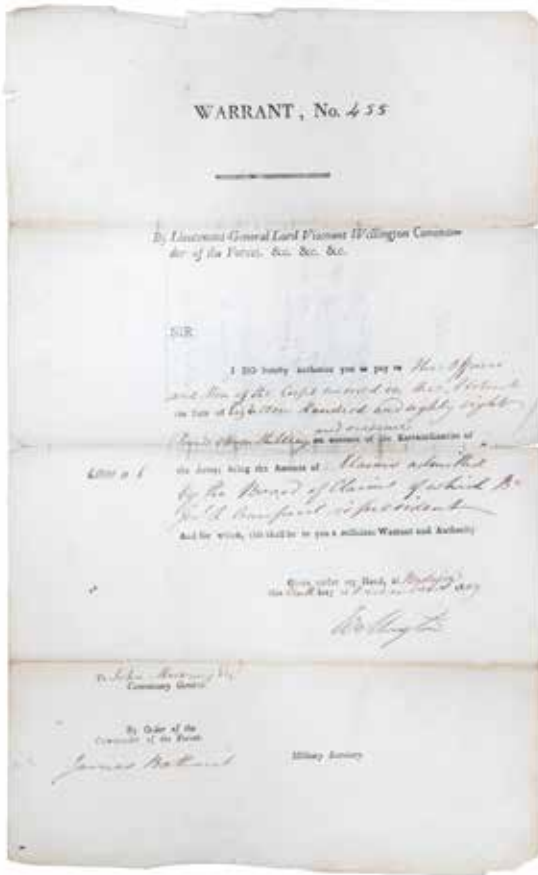 WARRANT, No. 455
By Lieutenant-General Lord Viscount Wellington Comman-
der of the Forces, &c. &c. &c.
SIR
I DO hereby authorize you to pay to the Officers
and Men of the Corps in the
the Sum of Eighteen Hundred and eighty eight
and
Pounds on account of the Extraordinaries of
the Army; being the Amount of Claims admitted
by the Board of Claims of which Br
Gen'l is president
And for which, this shall be to you a sufficient Warrant and Authority
Given under my Hand, at Badajoz
this day of 1809
Wellington
To John Murray Esqr
Commissary General
By Order of the
Commander of the Forces
James Bathurst Military Secretary